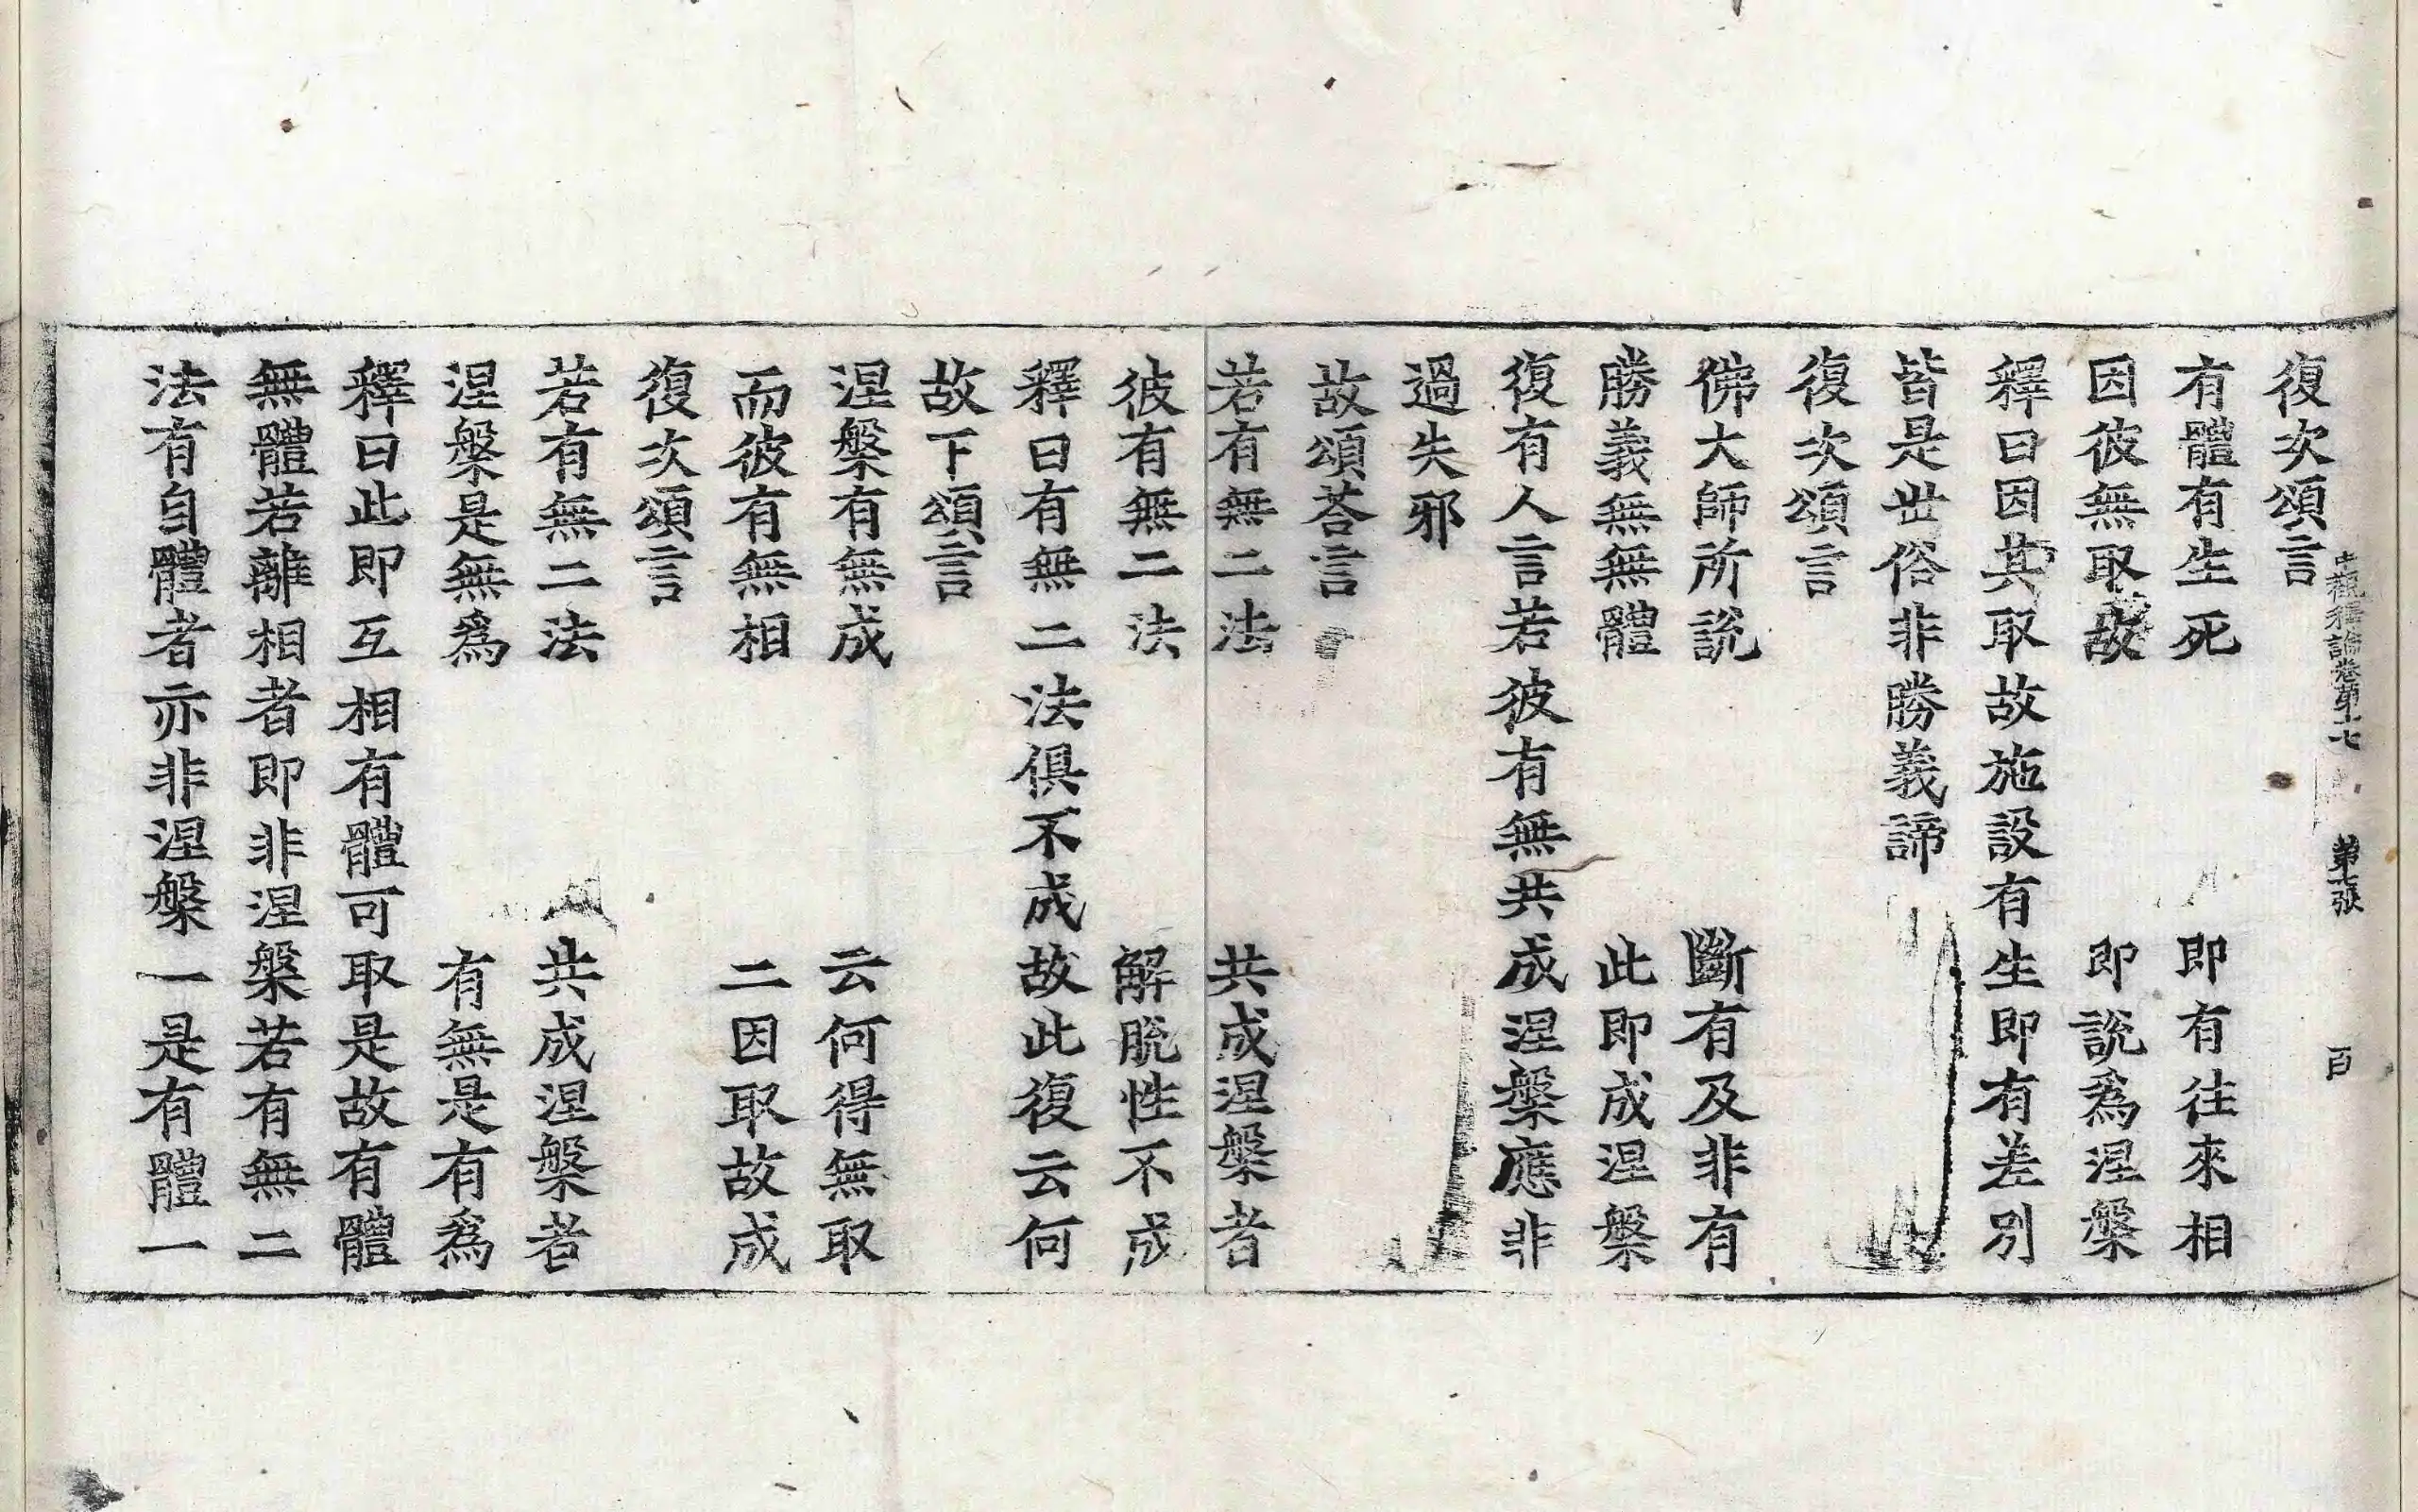 中觀釋論卷第十七　第七張　百
復次頌言
有體有生死　即有往來相
因彼無取故　即說爲涅槃
釋曰因其取故施設有生即有差別
皆是世俗非勝義諦
復次頌言
佛大師所說　斷有及非有
勝義無無體　此即成涅槃
復有人言若彼有無共成涅槃應非
過失邪
故頌荅言
若有無二法　共成涅槃者
彼有無二法　解脫性不成
釋曰有無二法俱不成故此復云何
故下頌言
涅槃有無成　云何得無取
而彼有無相　二因取故成
復次頌言
若有無二法　共成涅槃者
涅槃是無爲　有無是有爲
釋曰此即互相有體可取是故有體
無體若離相者即非涅槃若有無二
法有自體者亦非涅槃一是有體一